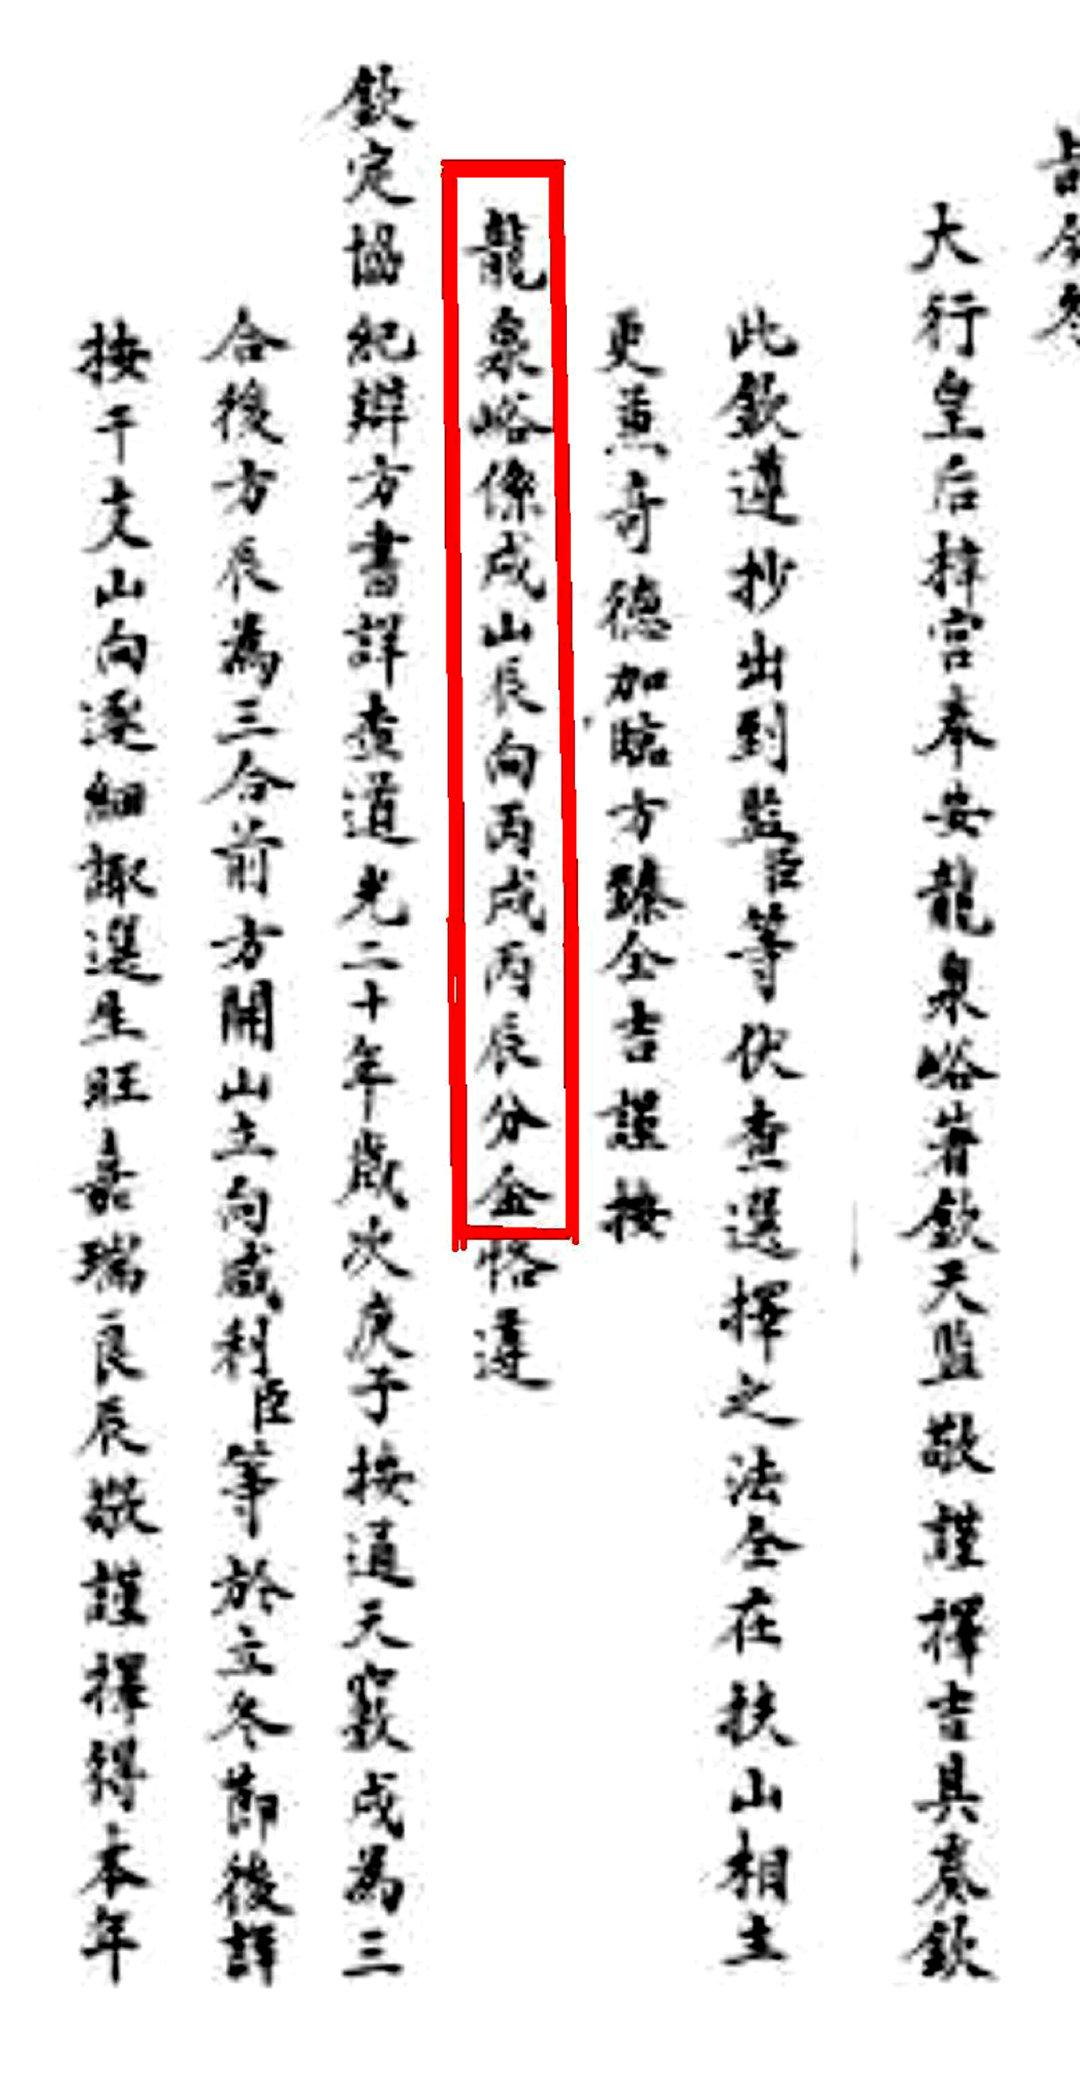 大行皇后梓宮奉安龍泉峪著欽天監敬謹擇吉具奏欽
此欽遵抄出到監臣等伏查選擇之法全在扶山相主
更蒉奇德加臨方臻全吉謹按
龍泉峪係戌山辰向丙戌丙辰分金恪遵
欽定協紀辨方書詳查道光二十年歲次庚子按通天竅戌為三
合後方辰為三合前方開山立向咸利臣等於立冬節後詳
按干支山向逐細諏選生旺嘉瑞良辰敬謹擇得本年